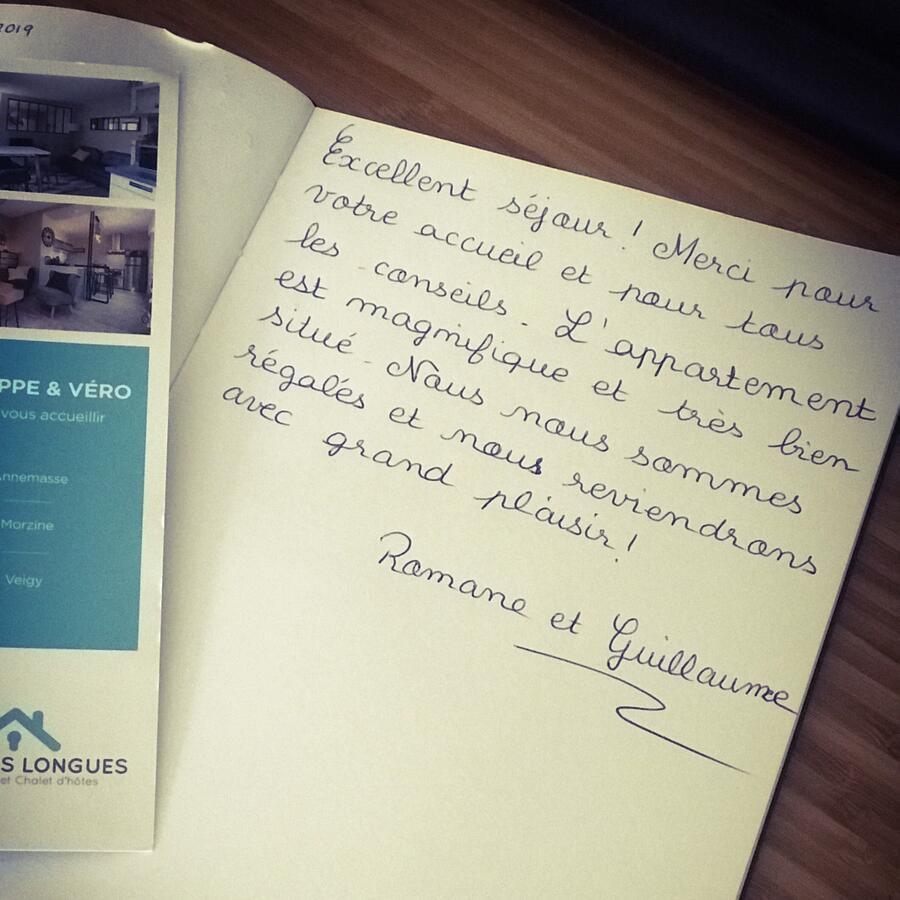 2019
PPE & VÉRO
vous accueillir
Annemasse
Morzine
Veigy
S LONGUES
et Chalet d'hôtes
Excellent séjour ! Merci pour
votre accueil et pour tous
les conseils. L'appartement
est magnifique et très bien
situé. Nous nous sommes
régalés et nous reviendrons
avec grand plaisir !
Romane et Guillaume